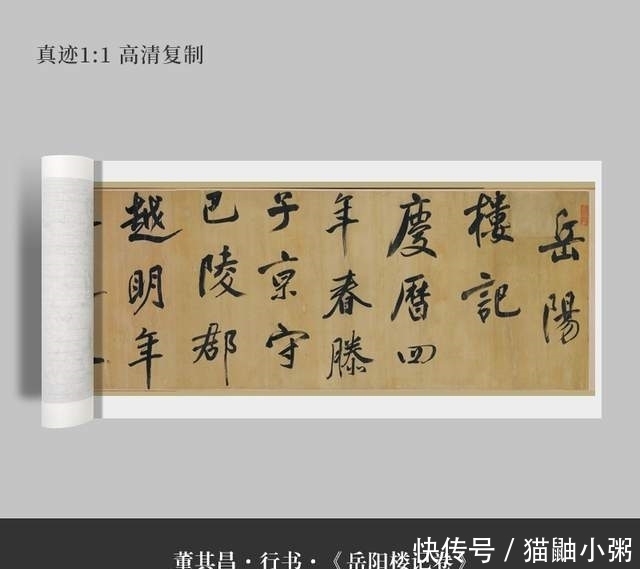 真迹1:1 高清复制
岳陽
樓記
慶曆四
年春滕
子京守
巴陵郡
越明年
董其昌·行书·《岳阳楼记卷》
快传号 / 猫鼬小粥